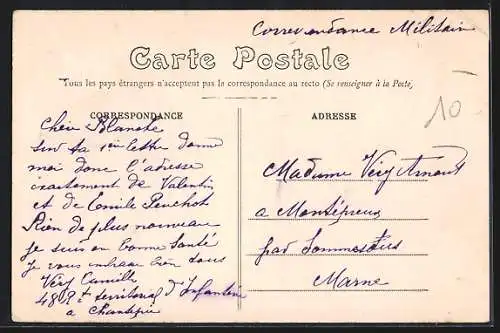 Correspondance Militaire
Carte Postale
Tous les pays étrangers n'acceptent pas la correspondance au recto (Se renseigner à la Poste)
CORRESPONDANCE
ADRESSE
10
Chère Blanche
sur ta 1ère lettre donne
moi donc l'adresse
exactement de Valentin
et de Camile
Rien de plus nouveau
je suis en bonne Santé
je vous embrasse bien tous
Very Camille
48 Rt territorial d'Infanterie
a
Madame Very
a Montépreux
par Sommesous
Marne